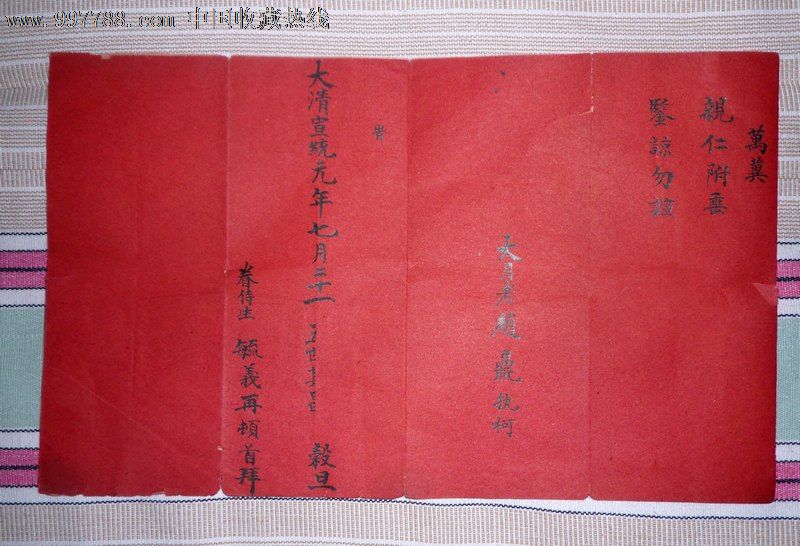 www.997788.com 中国收藏热线
萬冀
親仁附垂
鋻諒勿誼
大月老趙 執柯
眷
大清宣統元年七月二十一
穀旦
眷侍生 毓義再頓首拜